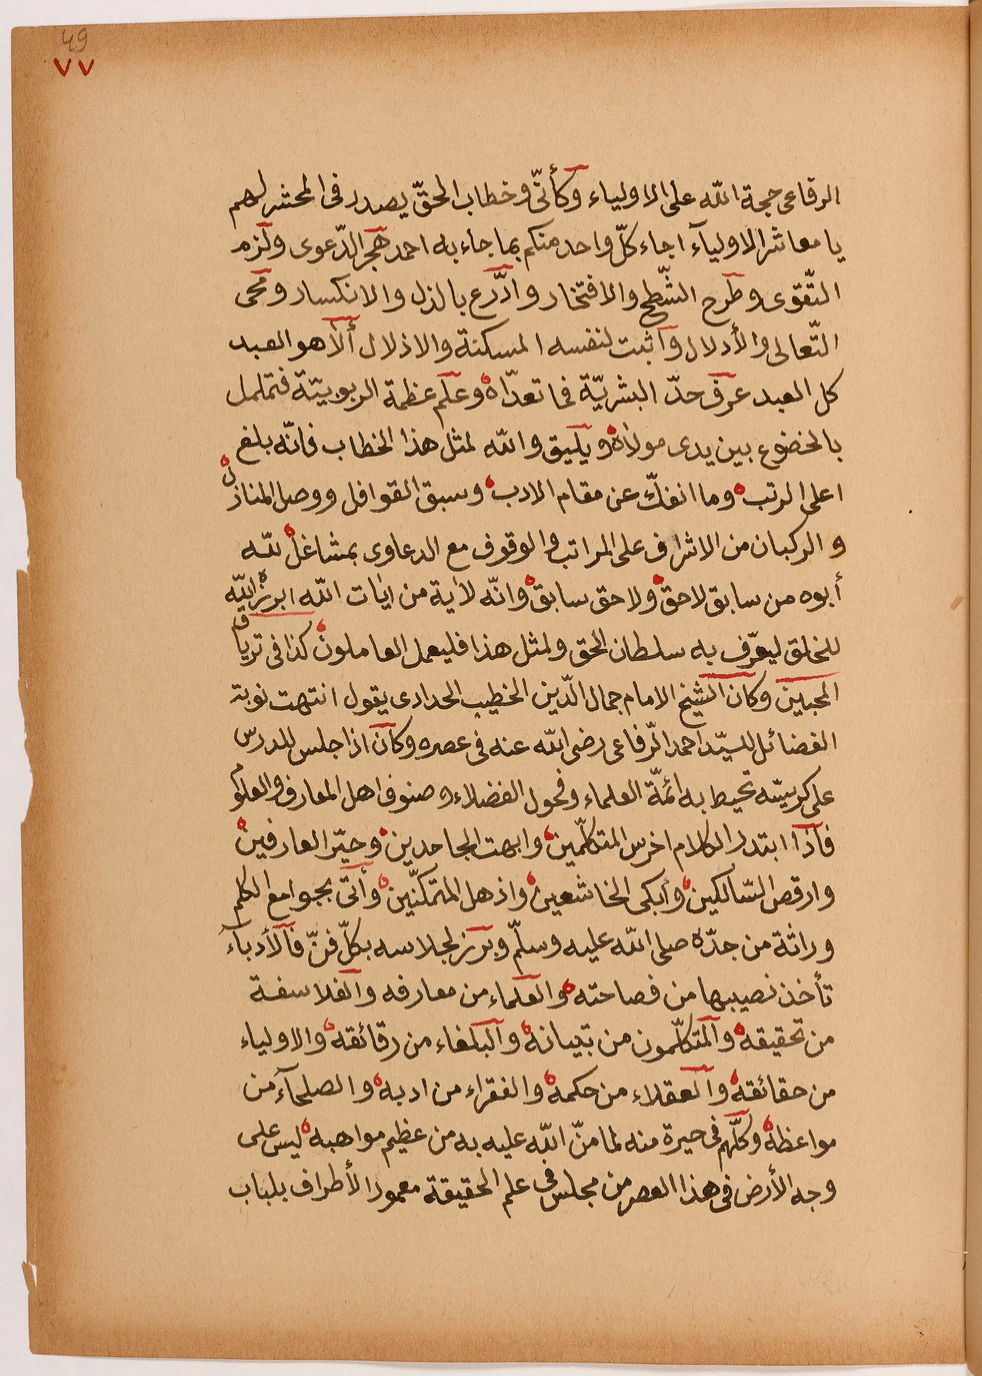 49
٧٧
الرفاعى حجة الله على الاولياء وكأنّى وخطاب الحقّ يصدر فى المحشر لهم
يا معاشر الاوليآء اجاء كلّ واحد منكم بما جاء به احمد هجر الدّعوى ولزم
التّقوى وطرح الشّطح والافتخار وادّرع بالذل والانكسار ومحى
التّعالى والأدلال وآثبت لنفسه المسكنة والاذلال ألا هو العبد
كل العبد عرف حدّ البشريّة فما تعدّاه وعلم عظمة الربوبيّة فتململ
بالخضوع بين يدى مولاه ويليق والله لمثل هذا الخطاب فانّه بلغ
اعلى الرتب وما انفكّ عن مقام الادب وسبق القوافل ووصل المنازل
والركبان من الاشراف على المراتب والوقوف مع الدعاوى بمشاغل لله
أبوه من سابق لاحق ولاحق سابق وانّه لأية من ايات الله ابرزه الله
للخلق ليعرّف به سلطان الحق ولمثل هذا فليعمل العاملون كذا فى ترياق
المحبين وكان الشيخ الامام جمال الدّين الخطيب الحدادى يقول انتهت نوبة
الفضائل للسيّد احمد الرّفاعى رضى الله عنه فى عصره وكان اذا جلس للدرس
على كرسيّه تحيط به ائمّة العلماء وفحول الفضلاء وصنوف اهل المعارف والعلوم
فاذا ابتدر الكلام اخرس المتكلّمين وابهت الجاحدين وحيّر العارفين
وارقص السّالكين وأبكى الخاشعين واذهل المتمكنّين وأتى بجوامع الكلم
وراثة من جدّه صلى الله عليه وسلّم وبرز لجلاسه بكلّ فنّ فالأدبآء
تأخذ نصيبها من فصاحته والعلماء من معارفه والفلاسفة
من تحقيقه والمتكلّمون من تبيانه والبلغاء من رقائقه والاولياء
من حقائقه والعقلاء من حكمه والفقراء من ادبه والصلحآء من
مواعظه وكلّهم فى حيرة منه لما منّ الله عليه به من عظيم مواهبه ليس على
وجه الأرض فى هذا العصر من مجلس فى علم الحقيقة معمور الأطراف بلباب